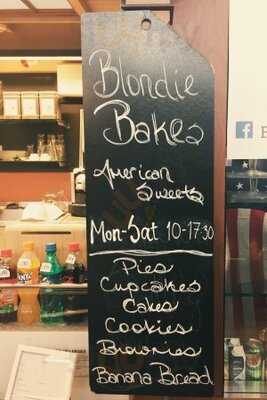 Blondie
Bakes
American
Sweets
Mon-Sat 10-17:30
Pies
Cupcakes
Cakes
Cookies
Brownies
Banana Bread